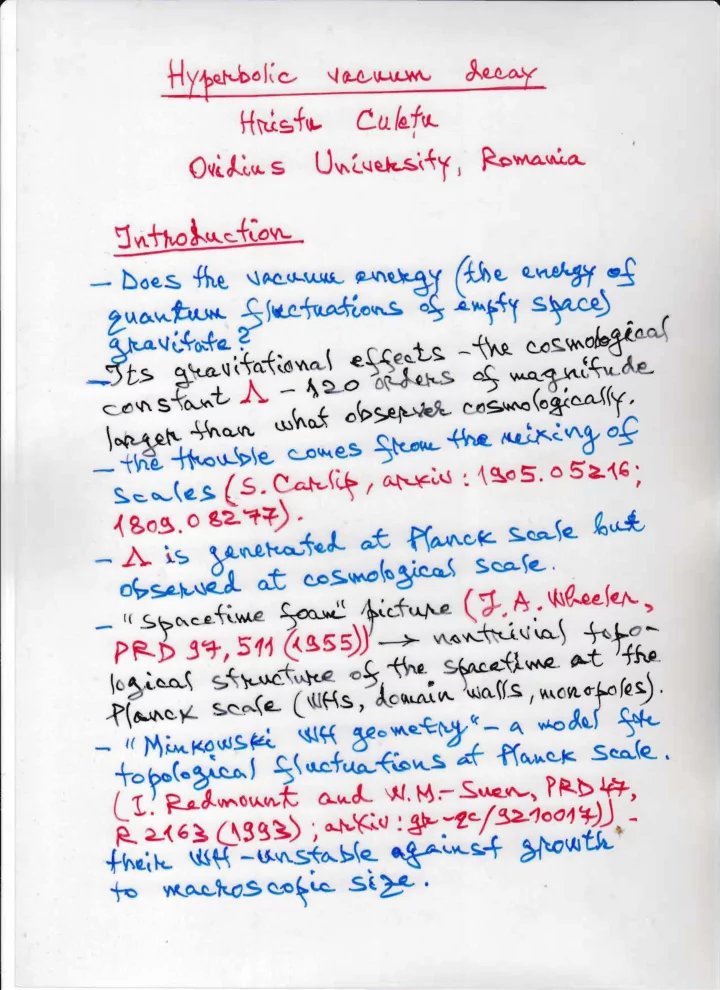 Hyperbolic vacuum decay
Hristu Culetu
Ovidius University, Romania
Introduction
– Does the vacuum energy (the energy of
quantum fluctuations of empty space)
gravitate?
– Its gravitational effects – the cosmological
constant Λ – 120 orders of magnitude
larger than what observer cosmologically.
– the trouble comes from the mixing of
scales (S. Carlip, arxiv: 1905.05216;
1809.08277).
– Λ is generated at Planck scale but
observed at cosmological scale.
– "Spacetime foam" picture (J.A. Wheeler,
PRD 97, 511 (1955)) → nontrivial topo-
logical structure of the spacetime at the
Planck scale (WHs, domain walls, monopoles).
– "Minkowski WH geometry" – a model for
topological fluctuations at Planck scale.
(I. Redmount and W.M.- Suen, PRD 47,
R 2163 (1993); arXiv: gr-qc/9210017)) -
their WH - unstable against growth
to macroscopic size.